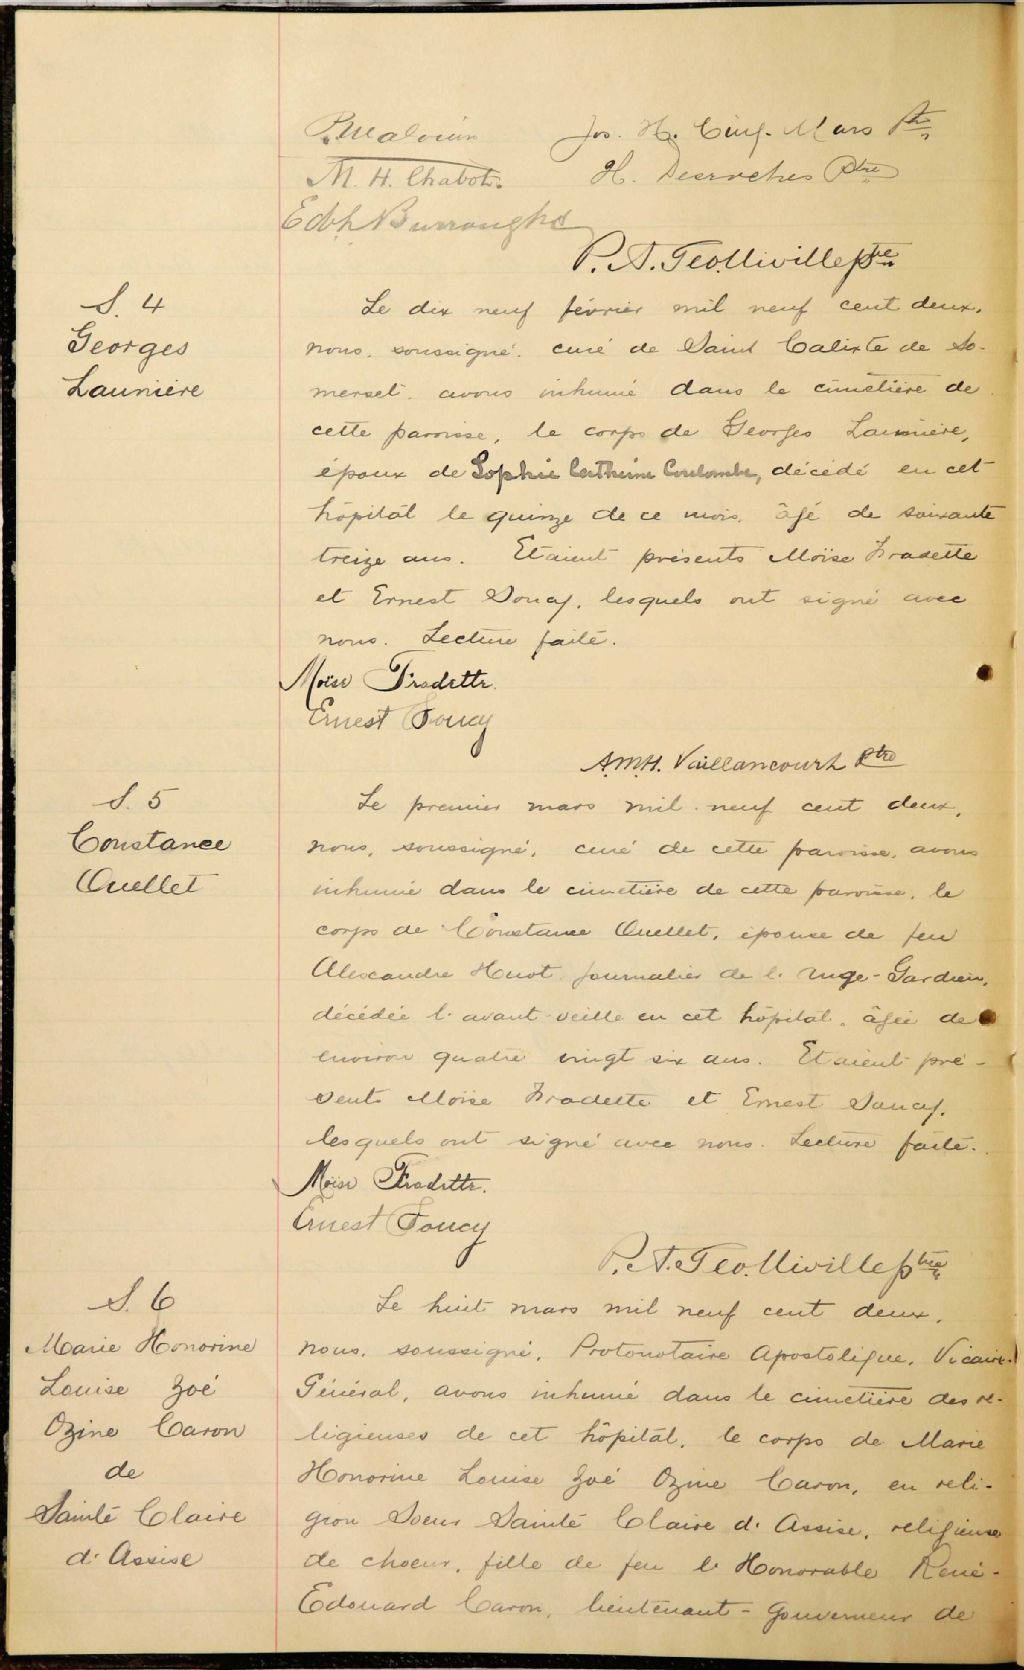 P. Malouin Jos. H. Cinq-Mars Ptre
M. H. Chabot. H. Desroches Ptre
Edh Burroughs
P. A. Teo. Miville ptre
S. 4
Georges
Launière
Le dix neuf février mil neuf cent deux,
nous, soussigné, curé de Saint Calixte de So-
merset, avons inhumé dans le cimetière de
cette paroisse, le corps de Georges Launière,
époux de Sophie Catherine Coulombe, décédé en cet
hôpital le quinze de ce mois, âgé de soixante
treize ans. Etaient présents Moïse Fradette
et Ernest Soucy, lesquels ont signé avec
nous. Lecture faite.
Moïse Fradette.
Ernest Soucy
A.M.H. Vaillancourt Ptre
S. 5
Constance
Ouellet
Le premier mars mil neuf cent deux,
nous, soussigné, curé de cette paroisse, avons
inhumé dans le cimetière de cette paroisse, le
corps de Constance Ouellet, épouse de feu
Alexandre Huot journalier de l'Ange-Gardien,
décédée l'avant-veille en cet hôpital, âgée de
environ quatre vingt six ans. Etaient pré-
sents Moïse Fradette et Ernest Soucy,
lesquels ont signé avec nous. Lecture faite.
Moïse Fradette.
Ernest Soucy
P. A. Teo. Miville ptre
S. 6
Marie Honorine
Louise Zoé
Ozine Caron
de
Sainte Claire
d'Assise
Le huit mars mil neuf cent deux,
nous, soussigné, Protonotaire Apostolique, Vicaire-
Général, avons inhumé dans le cimetière des re-
ligieuses de cet hôpital, le corps de Marie
Honorine Louise Zoé Ozine Caron, en reli-
gion Soeur Sainte Claire d'Assise, religieuse
de choeur, fille de feu l'Honorable René-
Edouard Caron, lieutenant-gouverneur de